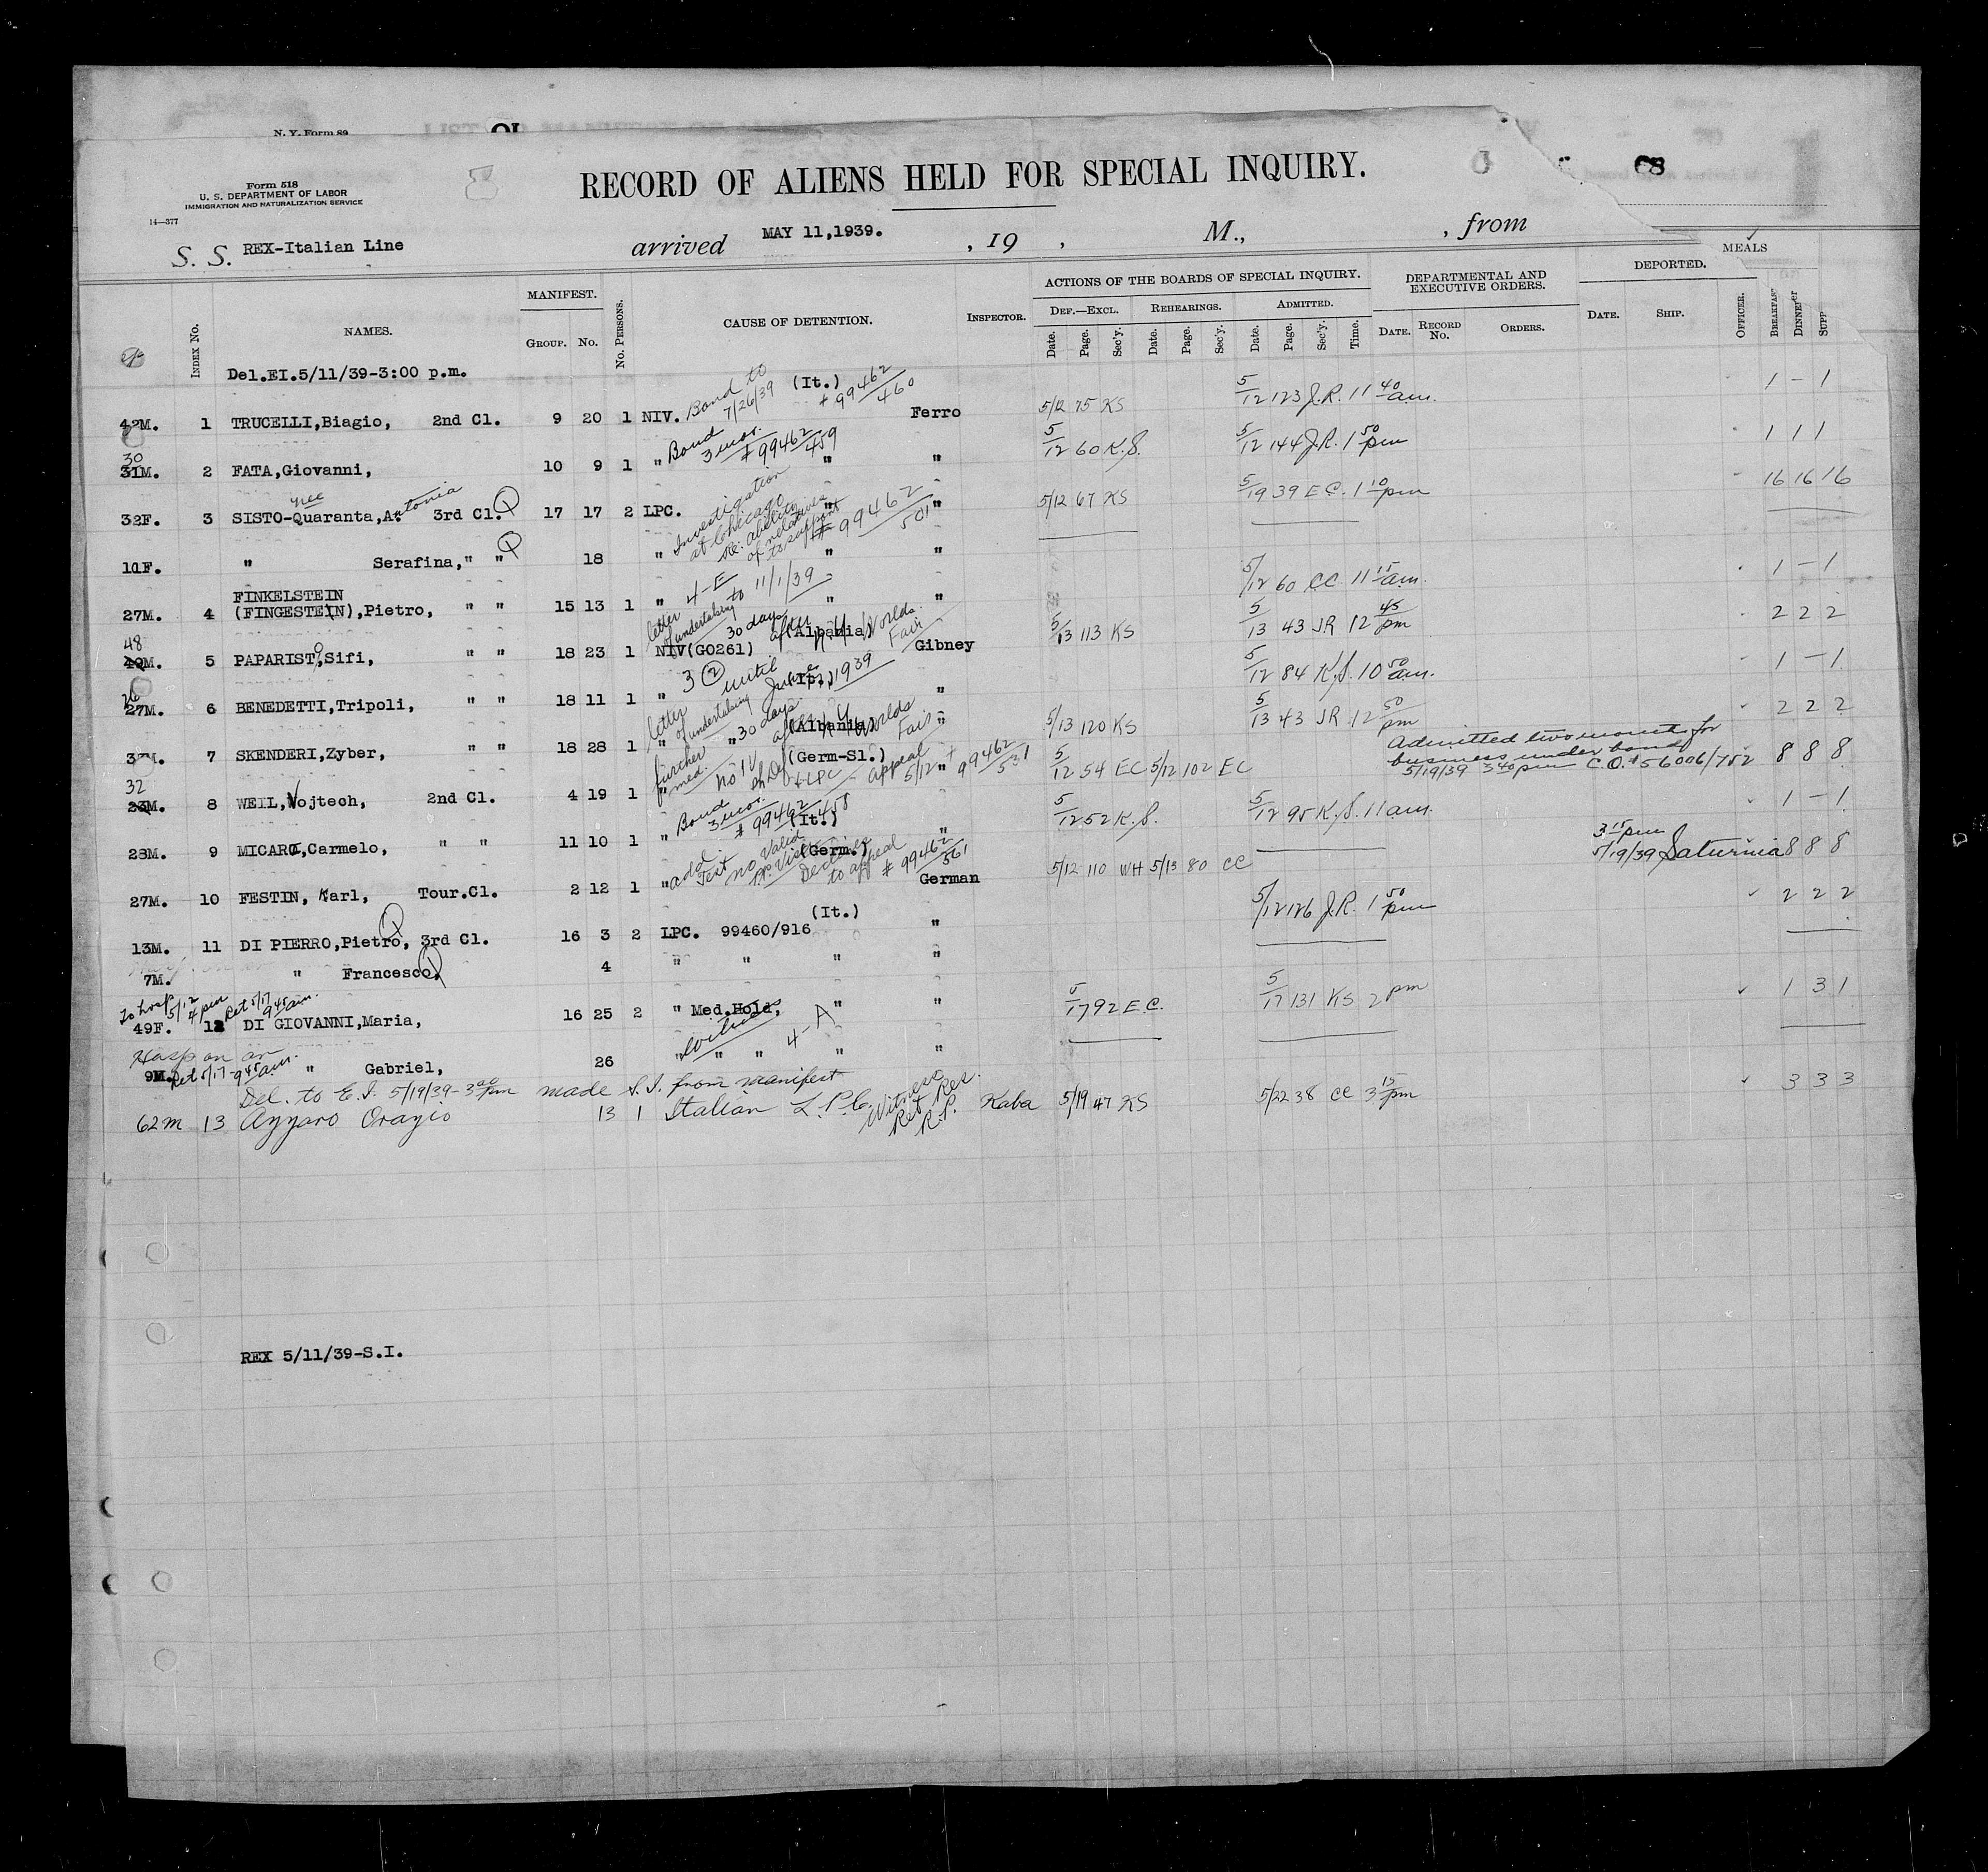 N. Y. Form 89
Form 518
U. S. DEPARTMENT OF LABOR
IMMIGRATION AND NATURALIZATION SERVICE
14—377
RECORD OF ALIENS HELD FOR SPECIAL INQUIRY.
68
S. S. REX-Italian Line arrived MAY 11,1939. , 19 , M., , from
MEALS
MANIFEST. ACTIONS OF THE BOARDS OF SPECIAL INQUIRY. DEPARTMENTAL AND EXECUTIVE ORDERS. DEPORTED.
DEF.—EXCL. REHEARINGS. ADMITTED.
INDEX NO. NAMES. GROUP. NO. NO. PERSONS. CAUSE OF DETENTION. INSPECTOR. Date. Page. Sec'y. Date. Page. Sec'y. Date. Page. Sec'y. Time. DATE. RECORD NO. ORDERS. DATE. SHIP. OFFICER. BREAKFAST DINNER SUPP
Del.EI.5/11/39-3:00 p.m.
42M. 1 TRUCELLI,Biagio, 2nd Cl. 9 20 1 NIV. Bond to 7/26/39 (It.) # 99462/460 Ferro 5/12 75 KS 5/12 123 J.R. 11 40 am. 1 - 1
30
31M. 2 FATA,Giovanni, 10 9 1 " Bond 3 mos. # 99462/459 " " 5/12 60 K.S. 5/12 144 J.R. 1 50 pm 1 1 1
32F. 3 SISTO-Quaranta,A. nee Antonia 3rd Cl. 17 17 2 LPC. Investigation at Chicago re: ability of relatives to support # 99462/501 " " 5/12 67 KS 5/19 39 EC. 1 10 pm 16 16 16
11F. " Serafina, " " 18 " " "
FINKELSTEIN
27M. 4 (FINGESTEIN),Pietro, " " 15 13 1 " 4-E to 11/1/39 " " 5/12 60 CC 11 15 am. 1 - 1
48
49M. 5 PAPARISTO,Sifi, " " 18 23 1 NIV(GO261) letter of undertaking 30 days after N.Y. Worlds Fair (Albania) Gibney 5/13 113 KS 5/13 43 JR 12 45 pm 2 2 2
26
27M. 6 BENEDETTI,Tripoli, " " 18 11 1 " 3 2 until June 1939 (It.) " 5/12 84 K.S. 10 50 am. 1 - 1
37M. 7 SKENDERI,Zyber, " " 18 28 1 " letter of undertaking 30 days after N.Y. Worlds Fair (Albania) " 5/13 120 KS 5/13 43 JR 12 50 pm 2 2 2
32
23M. 8 WEIL,Vojtech, 2nd Cl. 4 19 1 " further med. no IV + LPC Appeal 5/12 (Germ-Sl.) # 99462/531 " 5/12 54 EC 5/12 102 EC Admitted two months for business under bond 5/19/39 3 40 pm C.O. # 56006/752 8 8 8
28M. 9 MICARI,Carmelo, " " 11 10 1 " Bond 3 mos. # 99462/458 (It.) " 5/12 52 K.S. 5/12 95 K.S. 11 am. 1 - 1
27M. 10 FESTIN, Karl, Tour.Cl. 2 12 1 " add Test no Valid P.P. Visa Declines to appeal (Germ.) # 99462/561 German 5/12 110 WH 5/13 80 CC 3 15 pm 5/19/39 Saturnia 8 8 8
13M. 11 DI PIERRO,Pietro, 3rd Cl. 16 3 2 LPC. 99460/916 (It.) " 5/12 126 J.R. 1 50 pm 2 2 2
7M. " Francesco, 4 " " " "
To hosp 5/12 4 pm Ret 5/17 9 45 am.
49F. 12 DI GIOVANNI,Maria, 16 25 2 " Med.Hold, " " 5/17 92 E.C. 5/17 131 KS 2 pm 1 3 1
Witness 4-A
Hosp on on
9M. Ret 5/17-9 45 am. " Gabriel, 26 " " " " "
Del. to E.I. 5/19/39 - 3 00 pm made S.I. from manifest
62m 13 Azzaro Orazio 13 1 Italian L.P.C. Witness Ret Res. R.P. Kaba 5/19 47 KS 5/22 38 CC 3 15 pm 3 3 3
REX 5/11/39-S.I.